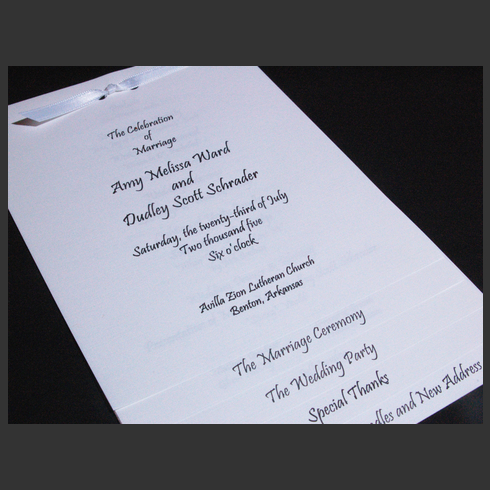 The Celebration
of
Marriage
Amy Melissa Ward
and
Dudley Scott Schrader
Saturday, the twenty-third of July
Two thousand five
Six o'clock
Avilla Zion Lutheran Church
Benton, Arkansas
The Marriage Ceremony
The Wedding Party
Special Thanks
and New Address